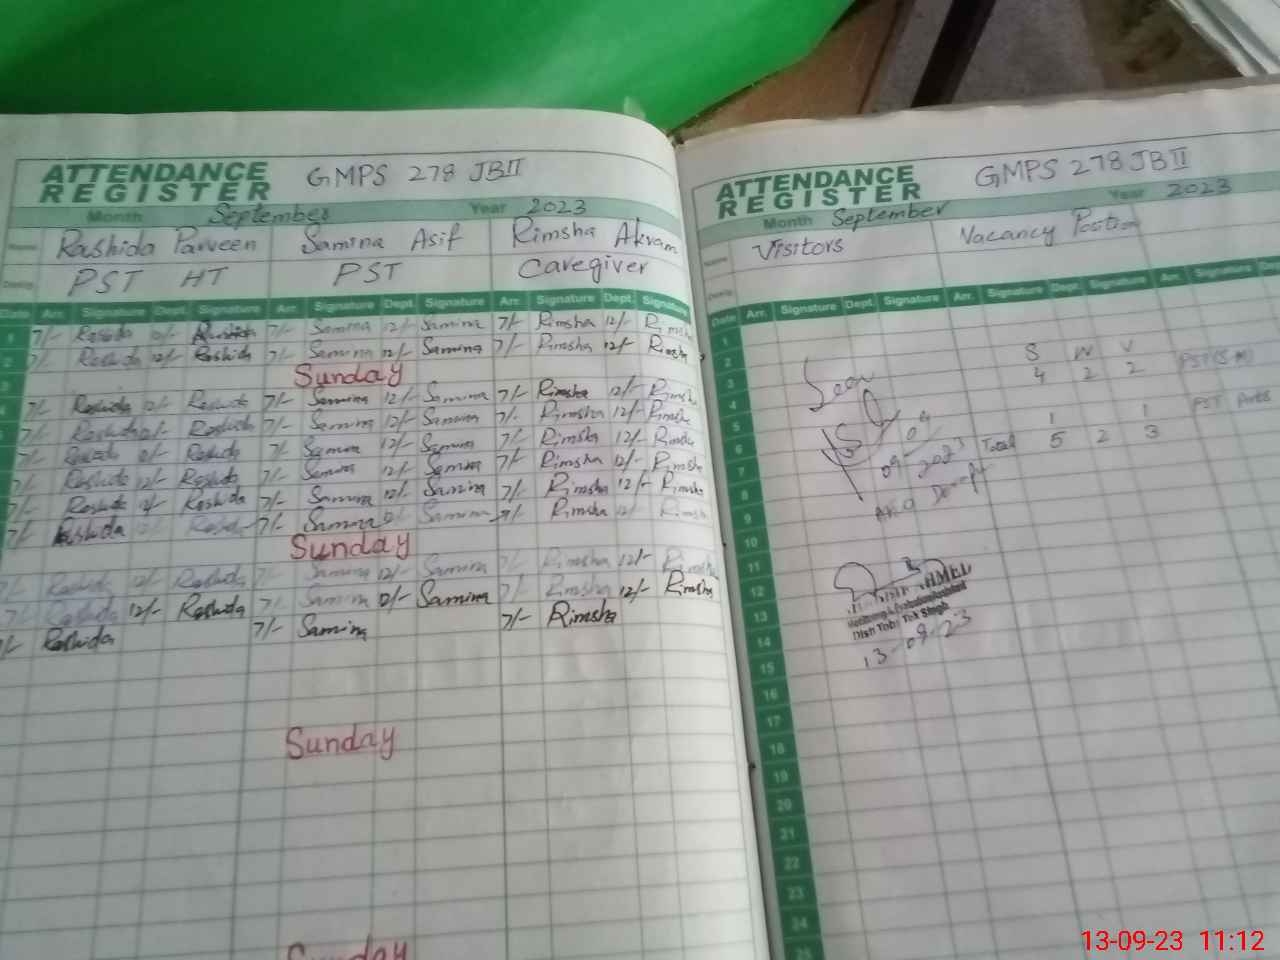 ATTENDANCE REGISTER GMPS 278 JB II
Month September Year 2023
Name Rashida Parveen Samina Asif Rimsha Akram
Desig. PST HT PST Caregiver
Date Arr. Signature Dept. Signature Arr. Signature Dept. Signature Arr. Signature Dept. Signature
1 7/- Rashida 12/- Rashida 7/- Samina 12/- Samina 7/- Rimsha 12/- Rimsha
2 7/- Rashida 12/- Rashida 7/- Samina 12/- Samina 7/- Rimsha 12/- Rimsha
3 Sunday
4 7/- Rashida 12/- Rashida 7/- Samina 12/- Samina 7/- Rimsha 12/- Rimsha
5 7/- Rashida Rashida 7/- Samina 12/- Samina 7/- Rimsha 12/- Rimsha
7/- Rashida Rashida 7/- Samina 12/- Samina 7/- Rimsha 12/- Rimsha
7/- Rashida 12/- Rashida 7/- Samina 12/- Samina 7/- Rimsha 12/- Rimsha
7/- Rashida 12/- Rashida 7/- Samina 12/- Samina 7/- Rimsha 12/- Rimsha
7/- Rashida 12/- 7/- Samina Samina 7/- Rimsha 12/- Rimsha
Sunday
7/- Rashida 12/- Rashida 7/- Samina 12/- Samina 7/- Rimsha 12/- Rimsha
7/- Rashida 12/- Rashida 7/- Samina 12/- Samina 7/- Rimsha 12/- Rimsha
7/- Rashida 7/- Samina 7/- Rimsha
Sunday
Sunday
ATTENDANCE REGISTER GMPS 278 JB II
Month September Year 2023
Name Visitors Vacancy Position
Desig.
Date Arr. Signature Dept. Signature Arr. Signature Dept. Signature Arr. Signature
1
2 S W V
3 4 2 2 PST (S.M)
4 Seen
5 1 1 PST Arts
6 04 Total 5 2 3
7 09 2023
8
9
10
11
12
13 Dist: Toba Tek Singh
14 13-09-23
15
16
17
18
19
20
21
22
23
24
25
13-09-23 11:12